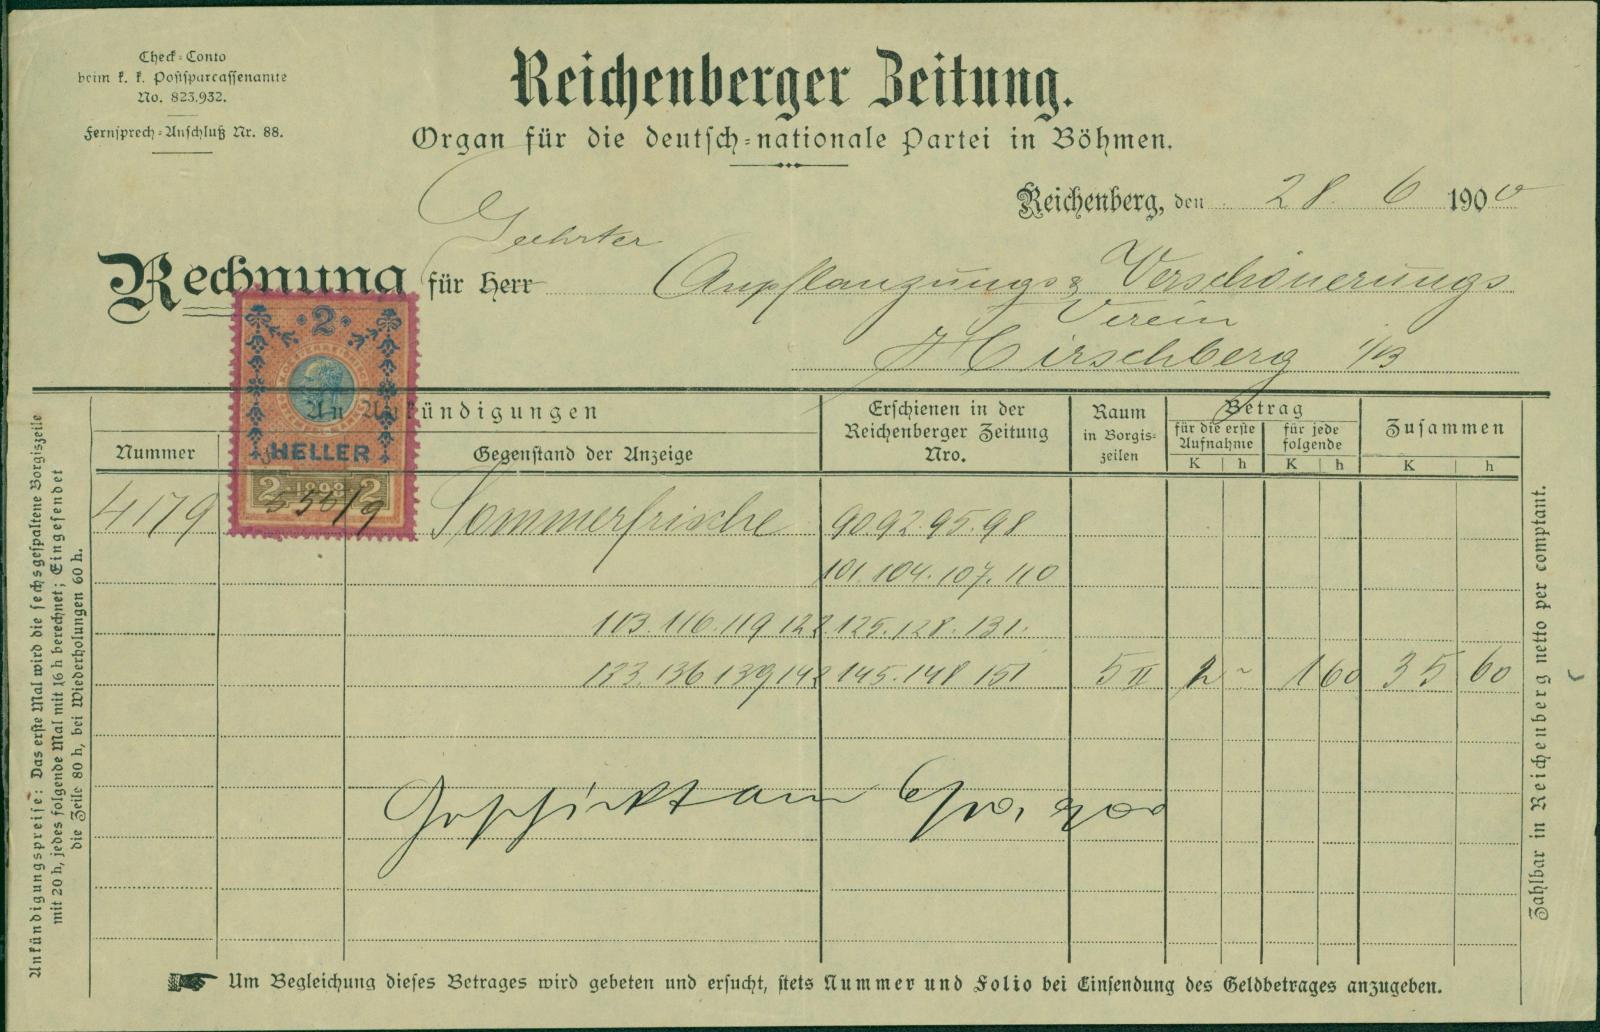 Check-Conto
beim k. k. Postsparcassenamte
No. 823.932.
Fernsprech-Anschluß Nr. 88.
Reichenberger Zeitung.
Organ für die deutsch-nationale Partei in Böhmen.
Reichenberg, den 28. 6 1900
Geehrter
Rechnung für Herr Anpflanzungs & Verschönerungs
Verein
Hirschberg i/B
2
HELLER
2 1898 2
5 50/9
An Ankündigungen
Nummer
Gegenstand der Anzeige
Erschienen in der
Reichenberger Zeitung
Nro.
Raum
in Borgis-
zeilen
Betrag
für die erste
Aufnahme
für jede
folgende
K h K h
Zusammen
K h
4179 Sommerfrische 90. 92. 95. 98
101. 104. 107. 110
113. 116. 119 122. 125. 128. 131.
133. 136 139 142 145. 148 151 5 II 2 ~ 1 60 35 60
Geschickt am 6/10. 900
Um Begleichung dieses Betrages wird gebeten und ersucht, stets Nummer und Folio bei Einsendung des Geldbetrages anzugeben.
Ankündigungspreise: Das erste Mal wird die sechsgespaltene Borgiszeile
mit 20 h, jedes folgende Mal mit 16 h berechnet; Eingesendet
die Zeile 80 h, bei Wiederholungen 60 h.
Zahlbar in Reichenberg netto per comptant.